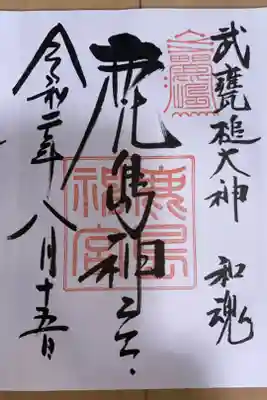 武甕槌大神 和魂
鹿島神宮
鹿島
神宮
令和二年八月十五日